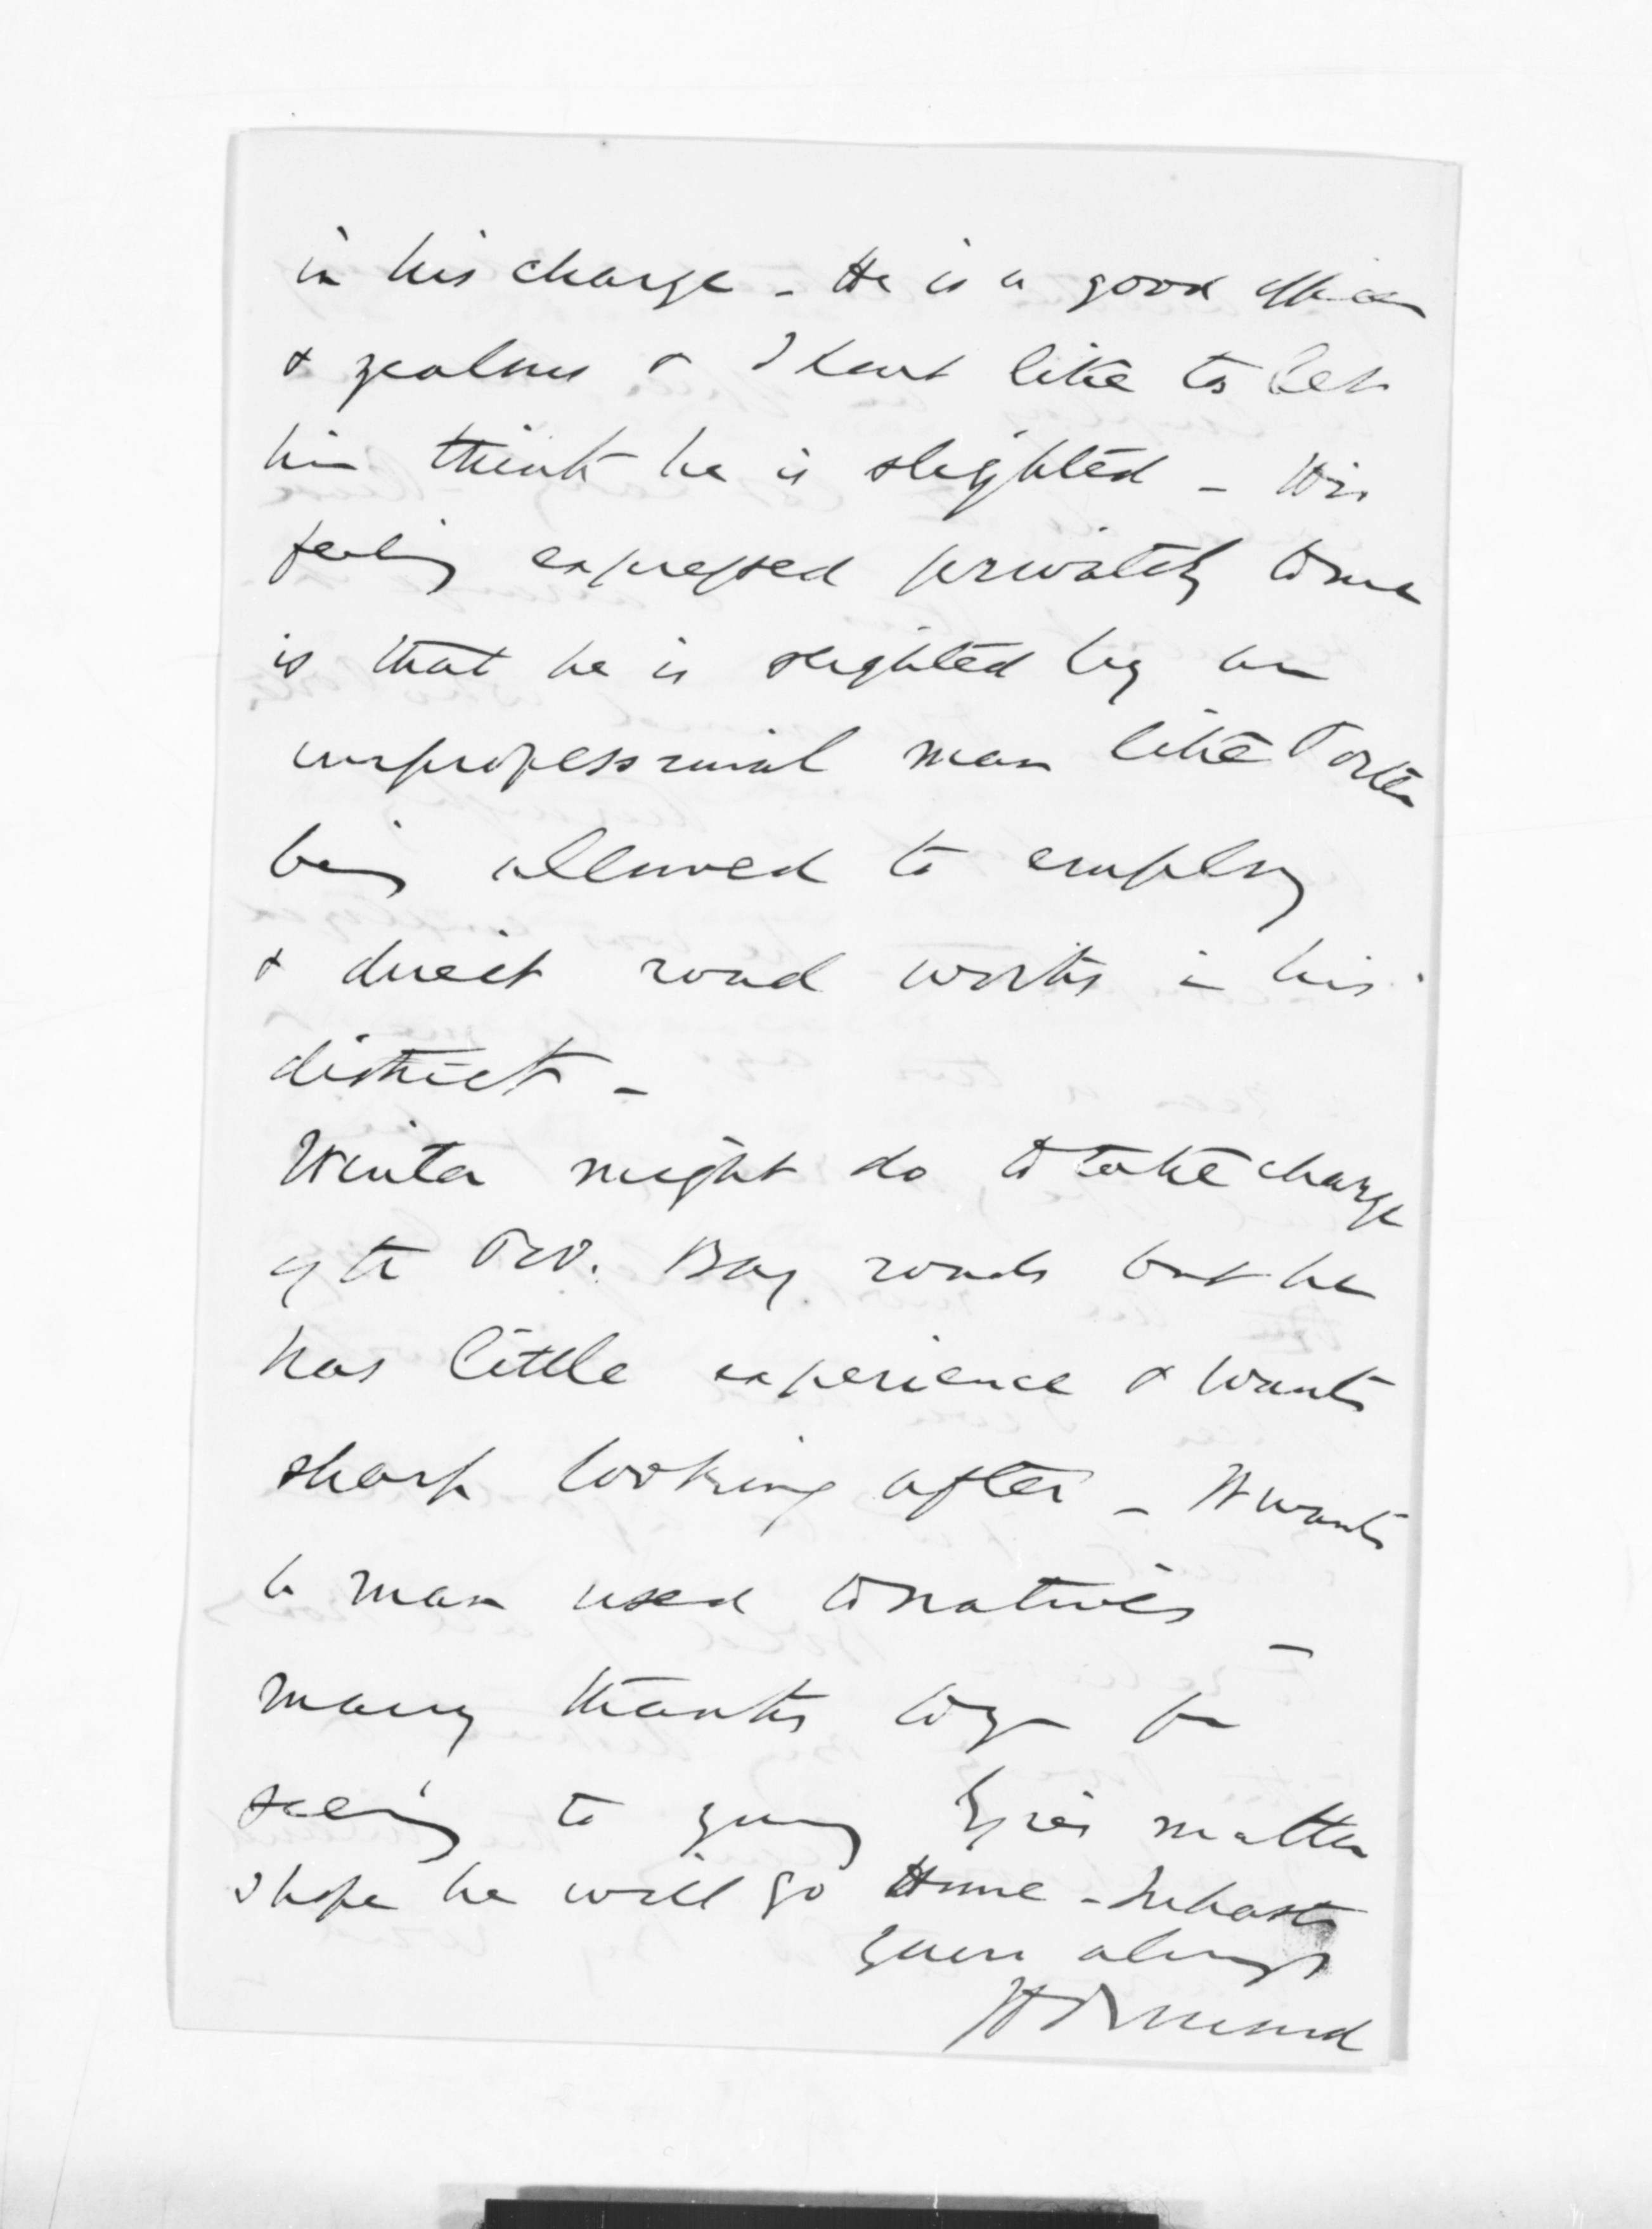 in his charge - He is a good officer
& zealous & I dont like to let
him think he is slighted - His
feeling expressed privately to me
is that he is slighted by an
unprofessional man like Porter
being allowed to employ
& direct road works in his
district -
Winter might do to take charge
of the Pov. Bay roads but he
has little experience & wants
sharp looking after - It wants
a man used to natives -
Many thanks to you for
seeing to young matter
I hope he will go Home - In haste
Yours always
H Ormond